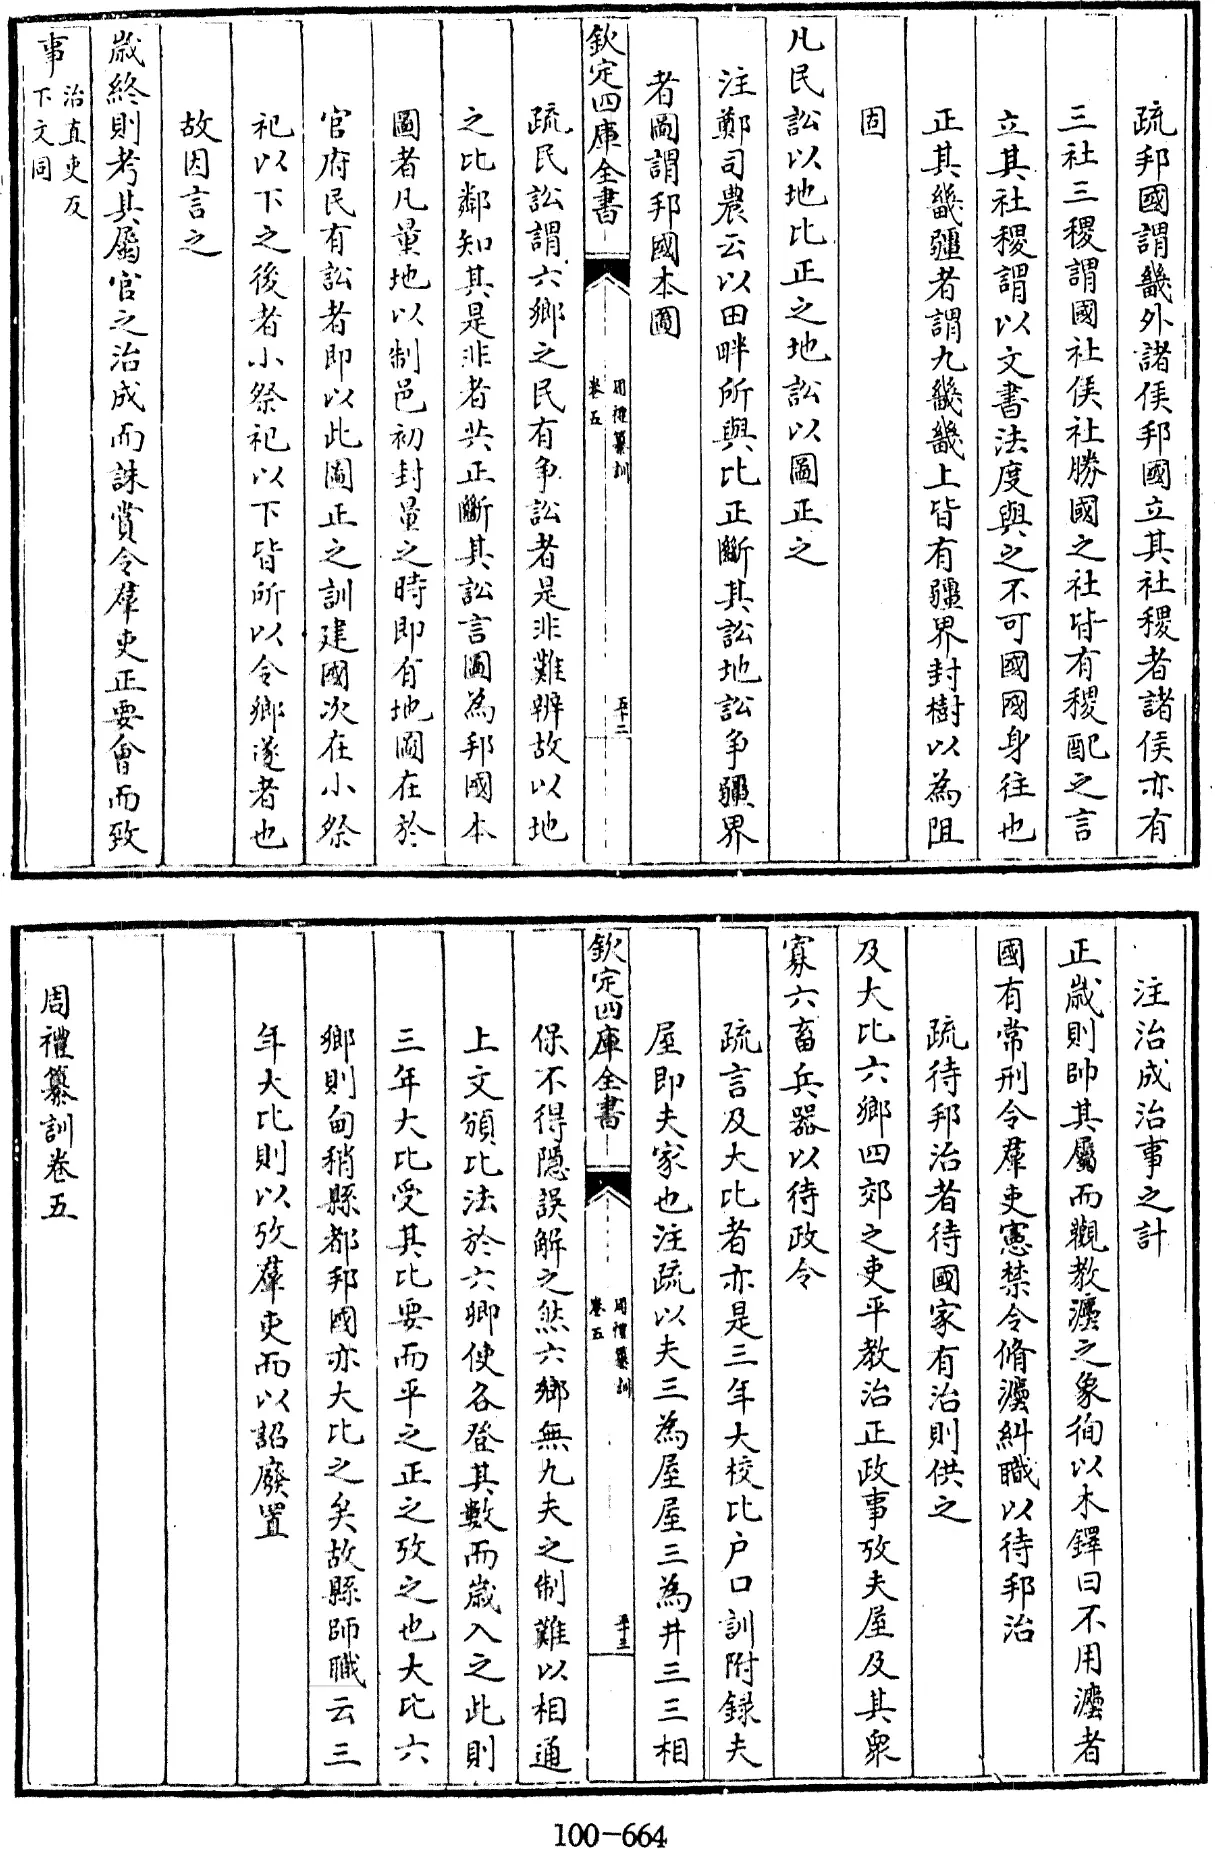 疏邦國謂畿外諸侯邦國立其社稷者諸侯亦有
三社三稷謂國社侯社勝國之社皆有稷配之言
立其社稷謂以文書法度與之不可國國身往也
正其畿疆者謂九畿畿上皆有疆界封樹以為阻
固
凡民訟以地比正之地訟以圖正之
注鄭司農云以田畔所與比正斷其訟地訟争疆界
者圖謂邦國本圖
欽定四庫全書
周禮纂訓
卷五
五十二
疏民訟謂六鄉之民有争訟者是非難辨故以地
之比鄰知其是非者共正斷其訟言圖為邦國本
圖者凡量地以制邑初封量之時即有地圖在於
官府民有訟者即以此圖正之訓建國次在小祭
祀以下之後者小祭祀以下皆所以令鄉遂者也
故因言之
歲終則考其屬官之治成而誅賞令羣吏正要會而致
事治直吏反
下文同
注治成治事之計
正歲則帥其屬而觀教灋之象徇以木鐸曰不用灋者
國有常刑令羣吏憲禁令脩灋糾職以待邦治
疏待邦治者待國家有治則供之
及大比六鄉四郊之吏平教治正政事攷夫屋及其衆
寡六畜兵器以待政令
疏言及大比者亦是三年大校比户口訓附録夫
屋即夫家也注疏以夫三為屋屋三為井三三相
欽定四庫全書
周禮纂訓
卷五
五十三
保不得隱誤解之然六鄉無九夫之制難以相通
上文頒比法於六卿使各登其數而歲入之此則
三年大比受其比要而平之正之攷之也大比六
鄉則甸稍縣都邦國亦大比之矣故縣師職云三
年大比則以攷羣吏而以詔廢置
周禮纂訓卷五
100-664